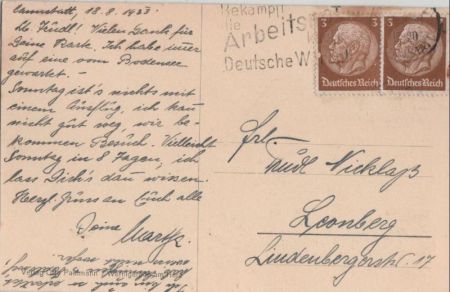 Cannstatt, 18.8.1933
Lb. Trudl! Vielen Dank für
Deine Karte. Ich habe immer
auf eine vom Bodensee
gewartet. -
Sonntag ist's nichts mit
einem Ausflug, ich kann
nicht gut weg, wir be-
kommen Besuch. Vielleicht
Sonntag in 8 Tagen, ich
lass Dich's dann wissen.
Herzl. Gruss an Euch alle
Deine
Martha
Bekämpf
die
Arbeits
Deutsche W
3
3
Deutsches Reich
Deutsches Reich
Frl.
Trudl Nicklaß
Leonberg
Lindenbergerstr. 17